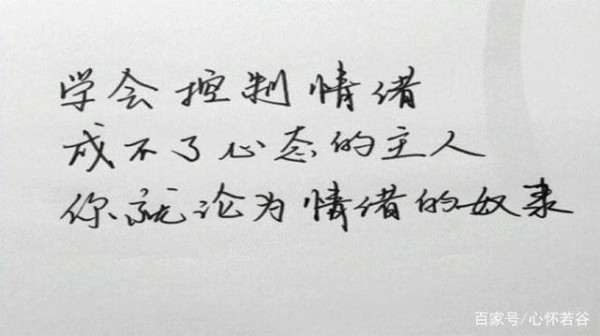 学会控制情绪
成不了心态的主人
你就论为情绪的奴隶
百家号/心怀若谷